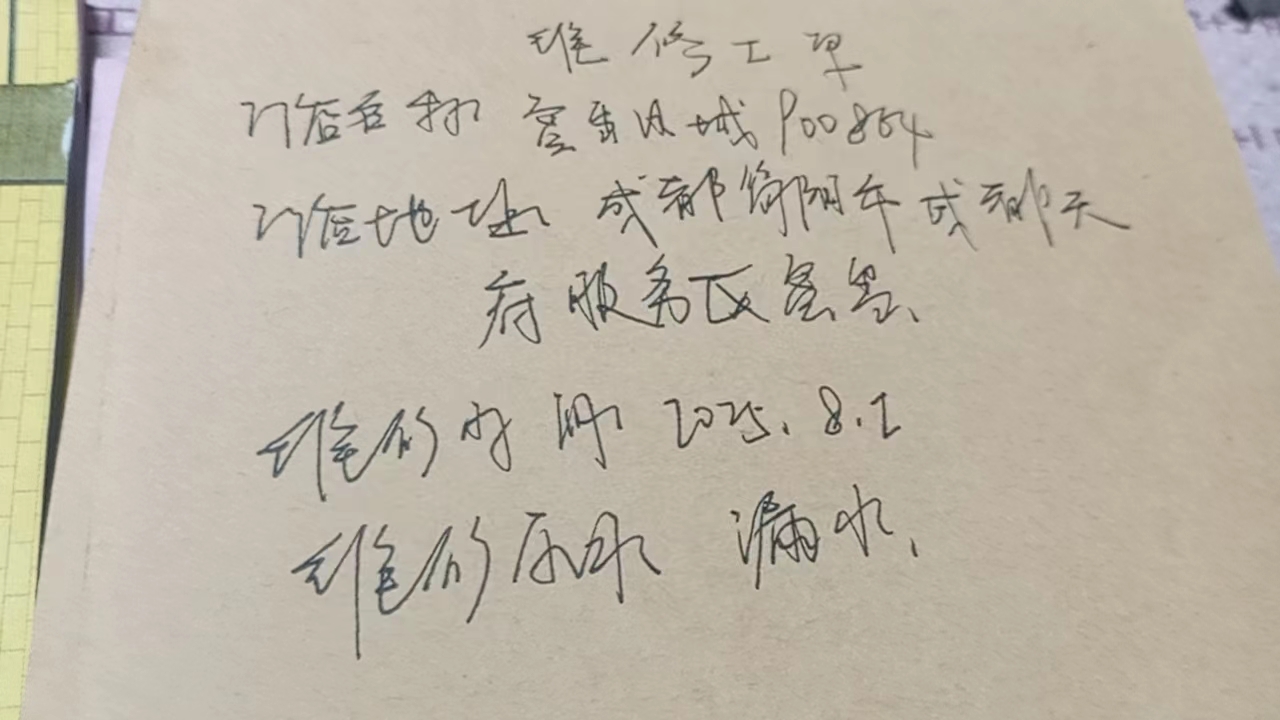 维修工单
门店名称 宽窄风城P00864
门店地址 成都简阳市成都天
府服务区宽窄、
维修时间 2025.8.2
维修原因 漏水、